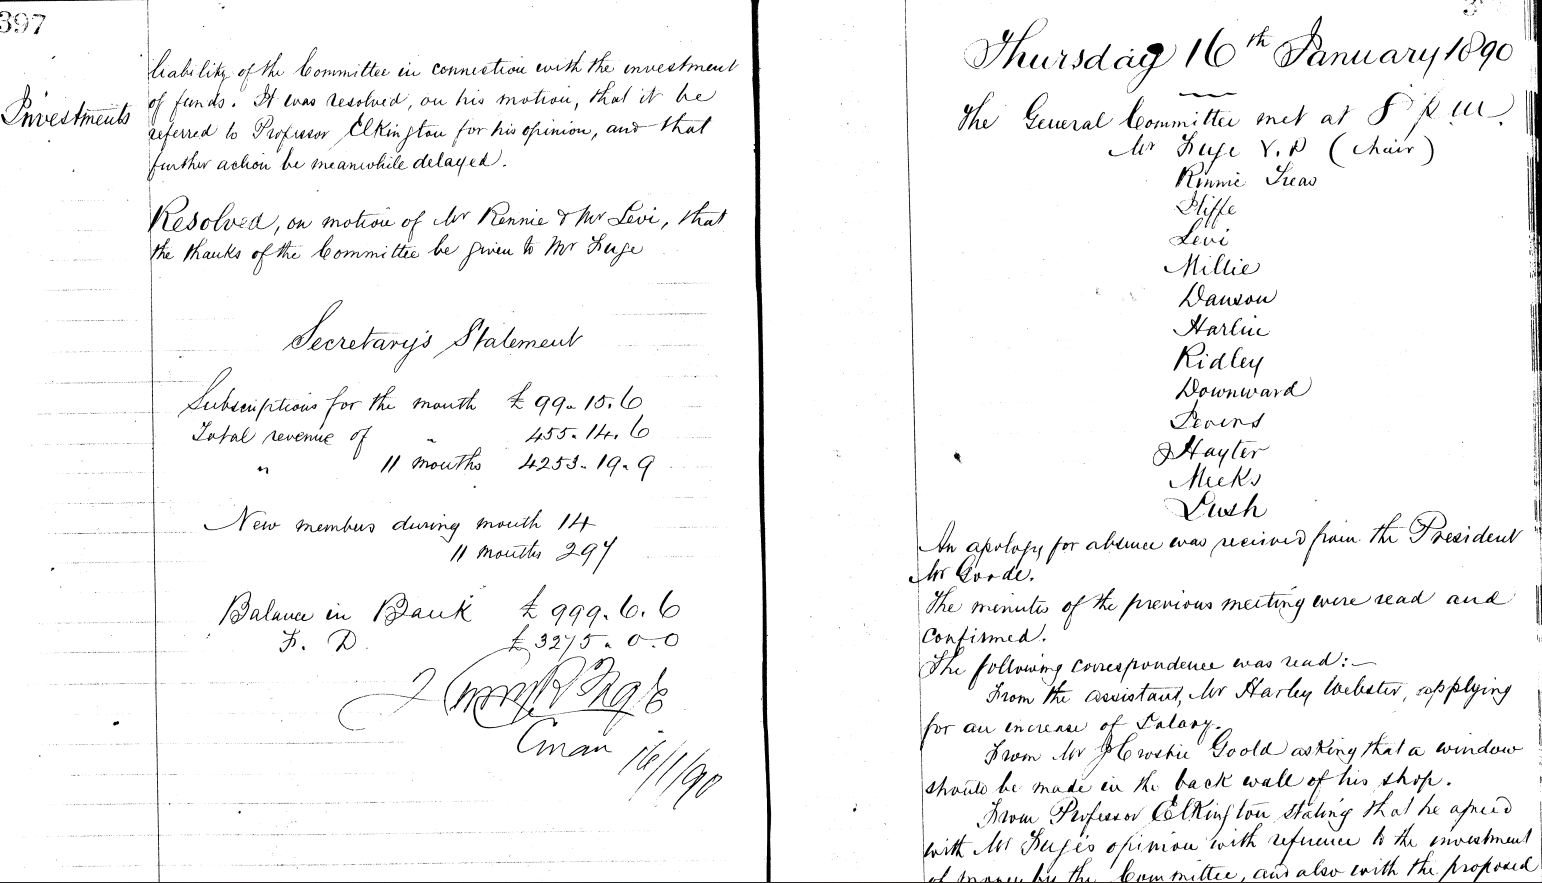 397
Investments
liability of the Committee in connection with the investment
of funds. It was resolved, on his motion, that it be
referred to Professor Elkington for his opinion, and that
further action be meanwhile delayed.
Resolved, on motion of Mr Rennie & Mr Levi, that
the thanks of the Committee be given to Mr Fuge
Secretary's Statement
Subscriptions for the month £ 99.15.6
Total revenue of " 455.14.6
" 11 months 4253.19.9
New members during month 14
11 months 297
Balance in Bank £ 999.6.6
F. D. £ 3275.0.0
Cman 16/1/90
Thursday 16th January 1890
The General Committee met at 8 p m.
Mr Fuge V.P (Chair)
Rennie Treas
Iliffe
Levi
Millie
Danson
Harlin
Ridley
Downward
Hayter
Meeks
Lush
An apology for absence was received from the President
Mr Goode.
The minutes of the previous meeting were read and
confirmed.
The following correspondence was read:—
From the assistant, Mr Harley Webster, applying
for an increase of Salary.
From Mr Goold asking that a window
should be made in the back wall of his shop.
From Professor Elkington stating that he agreed
with Mr Fuge's opinion with reference to the investment
of money by the Committee, and also with the proposed